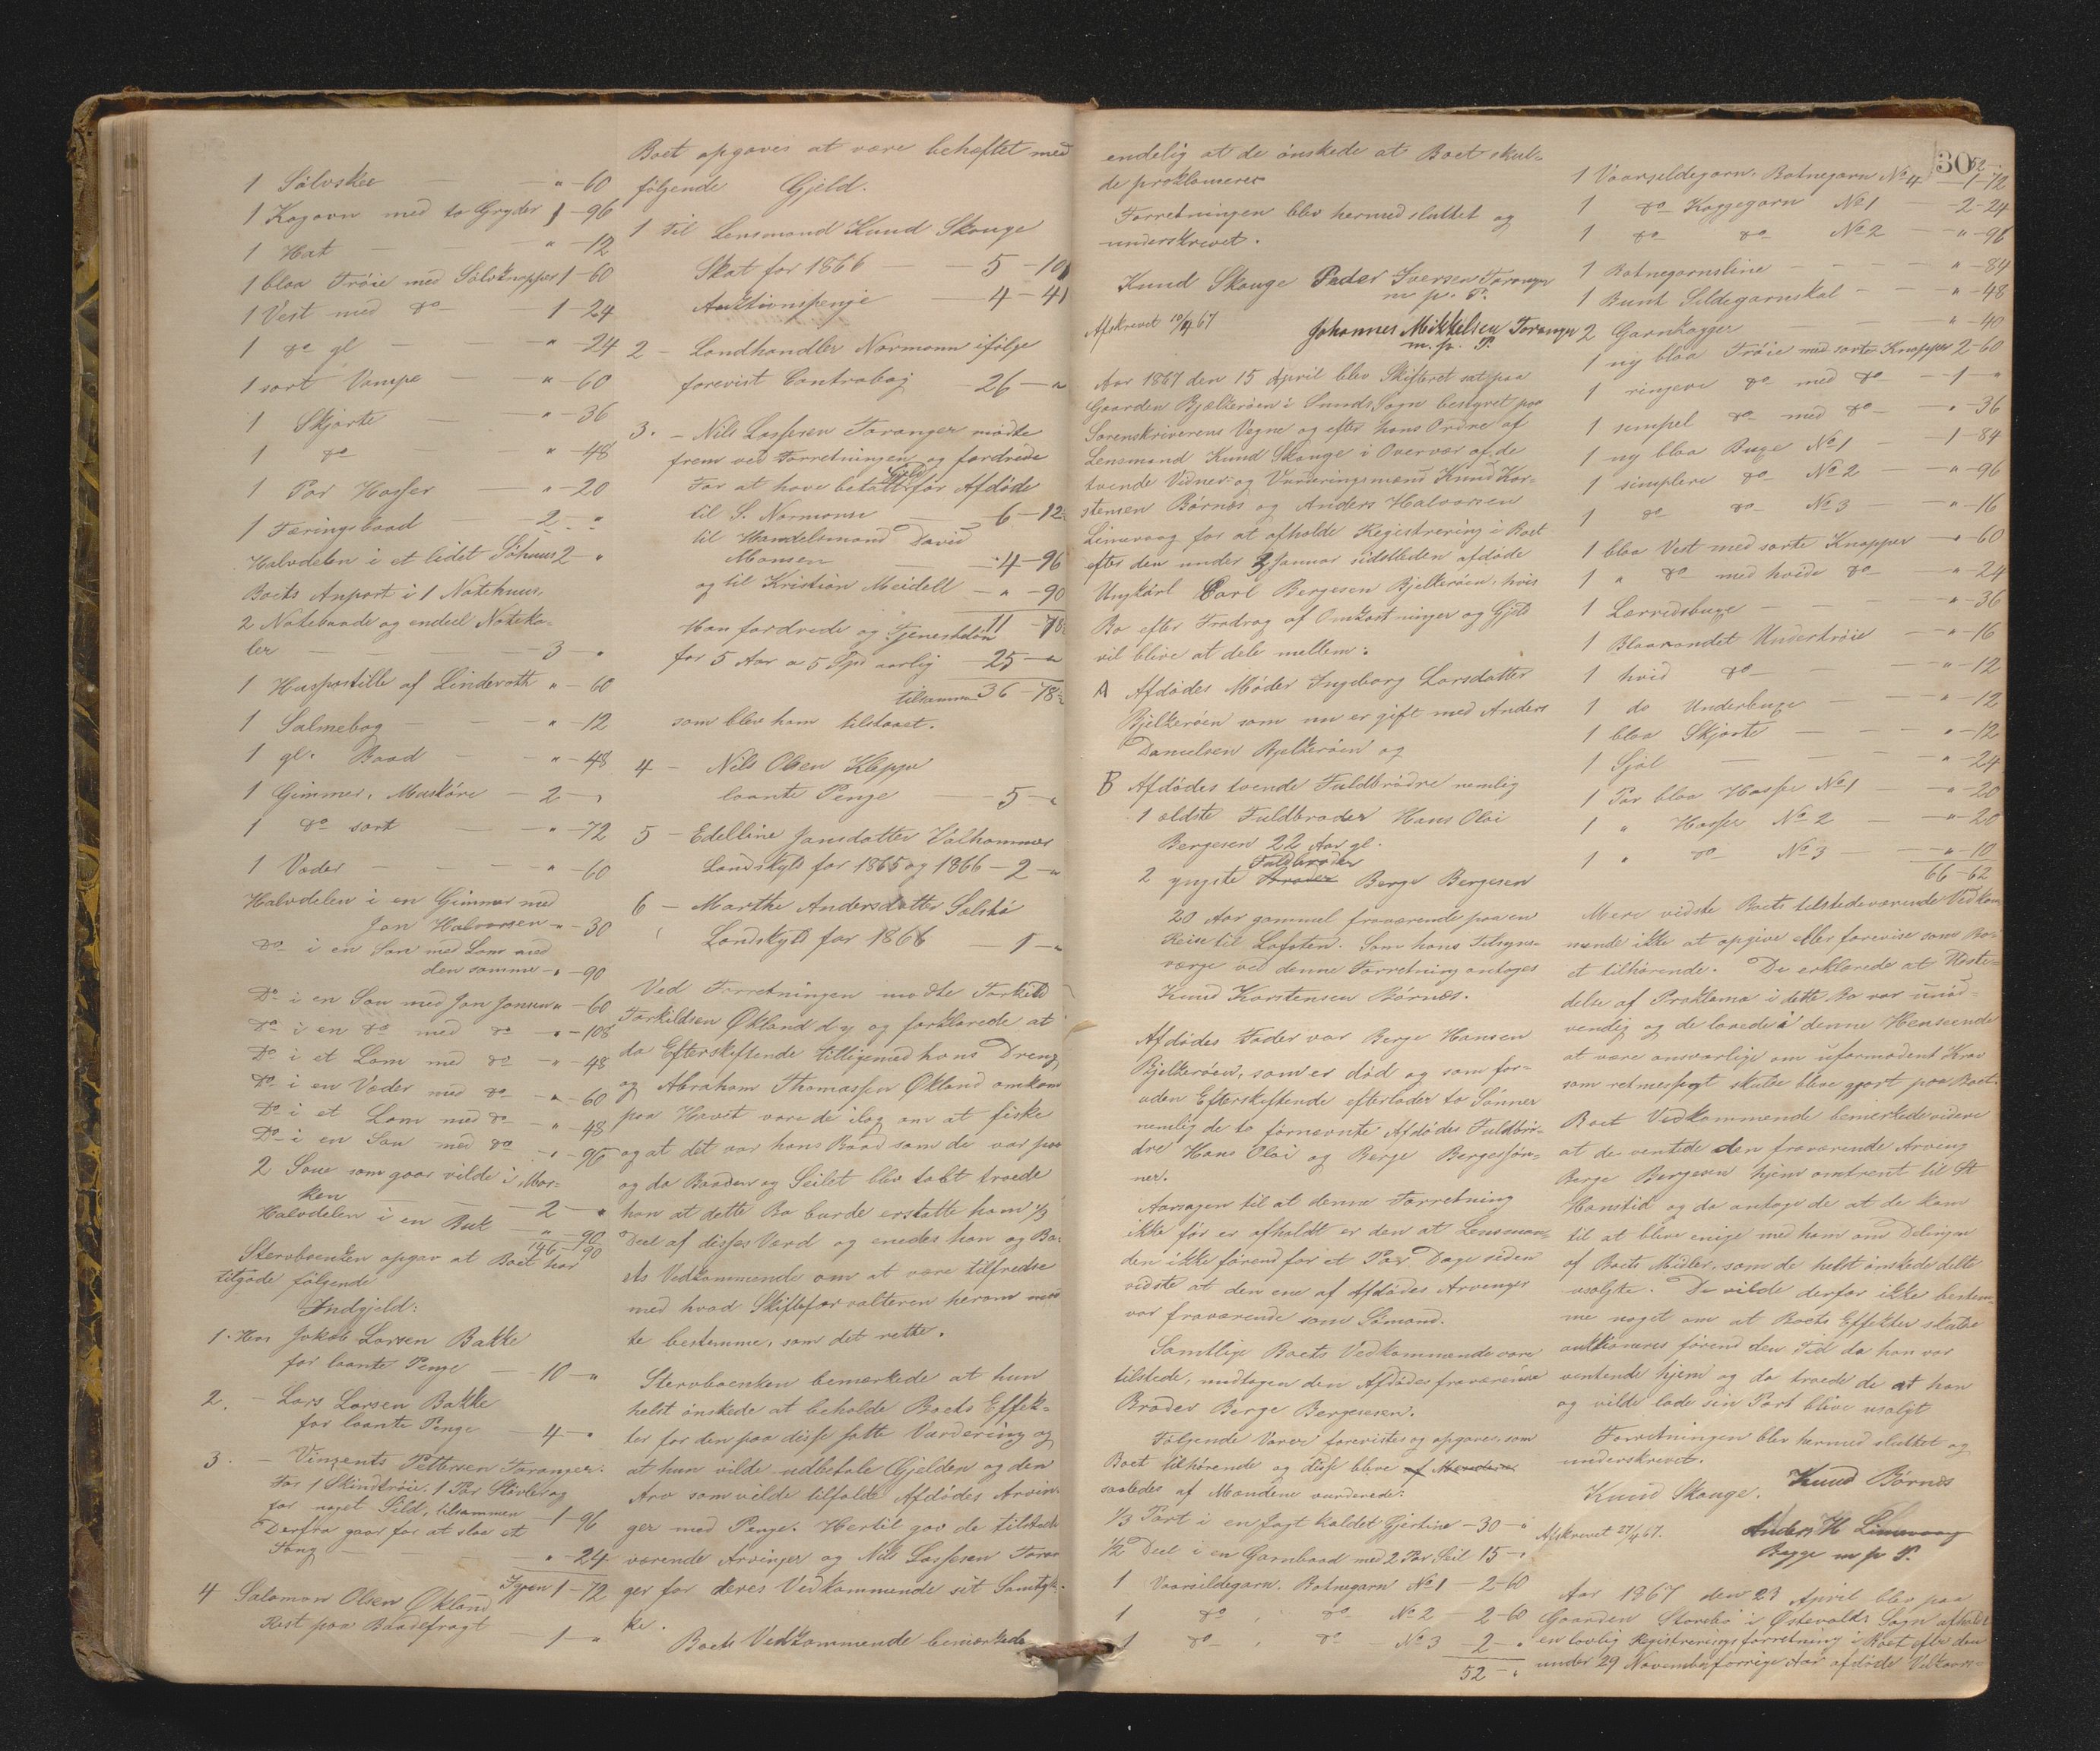 1 Sölvskee — " - 60
1 Kogovn med to Gryder 1 - 96
1 Hat — " - 12
1 blaa Tröie med Sölvknapper 1 - 60
1 Vest med do — 1 - 24
1 do gl — " - 24
1 sort Vampe — " - 60
1 Skjorte — " - 36
1 do — " - 48
1 Par Hosser — " - 20
1 Færingsbaad — 2 - "
Halvdelen i et lidet Söhuus 2 - "
Boets Anpart i 1 Notehuus,
2 Notebaade og endeel Noteka-
ler — 3 - "
1 Huspostille af Linderoth " - 60
1 Salmebog — " - 12
1 gl. Baad — " - 48
1 Gimmer, Musköre — 2 - "
1 do sort — " - 72
1 Væder — " - 60
Halvdelen i en Gimmer med
Jon Halvorsen " - 30
Do i en Sau med Lam med
den samme - " - 90
Do i en Sau med Jon Jonsen " - 60
Do i en do med do " - 108
Do i et Lam med do " - 48
Do i en Væder med do " - 60
Do i et Lam med do " - 48
Do i en Sau med do " - 96
2 Saue som gaar vilde i Mar-
ken — 2 - "
Halvdelen i en Buk — " - 90
146 - 90
Stervboenken opgav at Boet har
tilgode følgende
Indgjeld:
1. Hos Jakob Larsen Bakke
for laante Penge — 10 - "
2. - Lars Larsen Bakke
for laante Penge — 4 - "
3. - Vinzents Pettersen Toranger.
For 1 Skindtröie, 1 Par Stövler og
for noget Sild, tilsammen — 1 - 96
Derfra gaar for at slaa et
Tong — " - 24
Igjen 1 - 72
4 Salomon Olsen Økland
Rest paa Baadefragt — 1 - "
Boet opgaves at være behæftet med
følgende Gjeld.
1 Til Lensmand Knud Skouge
Skat for 1866 — 5 - 108
Auktionspenge — 4 - 41
2 - Landhandler Normann ifölge
forevist Contrabog — 26 - "
3. - Nils Lassesen Toranger mödte
frem ved Forretningen og fordrede
For at have betalt Gjeld for Afdöde
til S. Normann — 6 - 12
til Handelsmand David
Monsen — 4 - 96
og til Kristian Meidell — " - 90
11 - 78
Han fordrede og Tjenestelön
for 5 Aar a 5 Spd aarlig — 25 - "
tilsammen 36 - 78
som blev ham tilstaaet.
4 - Nils Olsen Kleppe
laante Penge — 5 - "
5 - Edelline Jansdatter Valhammer
Landskyld for 1865 og 1866 - 2 - "
6 - Marthe Andersdatter Solstö
Landskyld for 1866 — 1 - "
Ved Forretningen mødte Torkild
Torkildsen Økland d y og forklarede at
da Efterskiftende tilligemed hans Dreng
og Abraham Thomassen Økland omkom
paa Havet vare de ilag om at fiske
og at det var hans Baad som de var paa
og da Baaden og Seilet blev tabt troede
han at dette Bo burde erstatte ham 1/3
Deel af disses Værd og enedes han og Bo-
ets Vedkommende om at være tilfredse
med hvad Skifteforvalteren herom maa
te bestemme, som det rette.
Stervboenken bemærkede at hun
helst önskede at beholde Boets Effek-
ter for den paa disse satte Vurdering og
at hun vilde udbetale Gjelden og den
Arv som vilde tilfalde Afdödes Arvin-
ger med Penge. Hertil gav de tilstede
værende Arvinger og Nils Lassesen Toran
ger for deres Vedkommende sit Samtyk-
ke.
Boets Vedkommende bemærkede
endelig at de önskede at Boet skul-
de proklameres
Forretningen blev hermed sluttet og
underskrevet.
Knud Skouge Peder Iversen Toranger
m. p. P.
Afskrevet 10/4 67 Johannes Mikkelsen Toranger
m. p. P.
Aar 1867 den 15 April blev Skifteret sat paa
Gaarden Bjelkeröen i Sunds Sogn bestyret paa
Sorenskriverens Vegne og efter hans Ordre af
Lensmand Knud Skouge i Overvær af de
tvende Vidner og Vurderingsmænd Knud Kar-
stensen Börnæs og Anders Halvorsen
Limevaag for at afholde Registrering i Boet
efter den under 3 Januar sidstleden afdöde
Ungkarl Carl Bergesen Bjelkeröen, hvis
Bo efter Fradrag af Omkostninger og Gjeld
vil blive at dele mellem:
A Afdödes Moder Ingeborg Larsdatter
Bjelkeröen som nu er gift med Anders
Danielsen Bjelkeröen og
B Afdödes tvende Fuldbrödre nemlig
1 ældste Fuldbroder Hans Olai
Bergesen 22 Aar gl.
2 yngste Broder Fuldbroder Berge Bergesen
20 Aar gammel fraværende paa en
Reise til Lofoten. Som hans Tilsyns-
værge ved denne Forretning antages
Knud Karstensen Börnæs.
Afdödes Fader var Berge Hansen
Bjelkeröen, som er död og som for-
uden Efterskiftende efterlader to Sönner
nemlig de to förnævnte Afdödes Fuldbrö-
dre Hans Olai og Berge Bergessön-
ner.
Aarsagen til at denne Forretning
ikke för er afholdt er den at Lensman-
den ikke förend for et Par Dage siden
vidste at den ene af Afdödes Arvinger
var fraværende som Sömand.
Samtlige Boets Vedkommende vare
tilstede, undtagen den Afdödes fraværende
Broder Berge Bergesen.
Følgende Varer forevistes og opgaves som
Boet tilhörende og disse bleve af Mændene
saaledes af Mændene vurderede:
1/3 Part i en Jagt kaldet Gjertine - 30 - "
1/2 Deel i en Garnbaad med 2 Par Seil 15 - "
1 Vaarsildegarn. Botnegarn No 1 - 2 - 60
1 do do No 2 - 2 - 60
1 do do No 3 - 2 - "
52 - "
30
52 -
1 Vaarsildegarn. Botnegarn No 4 — 1 - 72
1 do Kaggegarn No 1 — 2 - 24
1 do do No 2 — " - 96
1 Botnegarnsline — " - 84
1 Bunt Sildegarnskal — " - 48
2 Garnkagger — " - 40
1 ny blaa Tröie med sorte Knapper 2 - 60
1 ringere do med do — 1 - "
1 simpel do med do — " - 36
1 ny blaa Buxe No 1 — 1 - 84
1 simplere do No 2 — " - 96
1 do do No 3 — " - 16
1 blaa Vest med sorte Knapper — " - 60
1 " do med hvide do — " - 24
1 Lærredsbuxe — " - 36
1 Blaarandet Undertröie — " - 16
1 hvid do — " - 12
1 do Underbuxe — " - 12
1 blaa Skjorte — " - 12
1 Sjal — " - 24
1 Par blaa Hosser No 1 — " - 20
1 " Hosser No 2 — " - 20
1 " do No 3 — " - 10
66 - 62
Mere vidste Boets tilstedeværende Vedkom
mende ikke at opgive eller forevise som Bo-
et tilhörende. De erklærede at Udste-
delse af Proklama i dette Bo var unöd-
vendig og de lovede i denne Henseende
at være ansvarlige om uformodent Krav
som retmessigt skulde blive gjort paa Boet.
Boet Vedkommende bemerkede videre
at de ventede den fraværende Arving
Berge Bergesen hjem omtrent til St
Hanstid og da antoge de at de kom
til at blive enige med ham om Delingen
af Boets Midler, som de helst önskede delte
usolgte. De vilde derfor ikke bestem-
me noget om at Boets Effekter skulde
auktioneres förend den Tid da han var
ventende hjem og da troede de at han
og vilde lade sin Part blive usolgt
Forretningen blev hermed sluttet og
underskrevet.
Knud Skouge. Knud Börnæs
Afskrevet 27/4 67. Anders H Limevaag
Begge m p P.
Aar 1867 den 23 April blev paa
Gaarden Storebö i Østevolds Sogn afholdt
en lovlig Registreringsforretning i Boet efter den
under 29 November forrige Aar afdöde